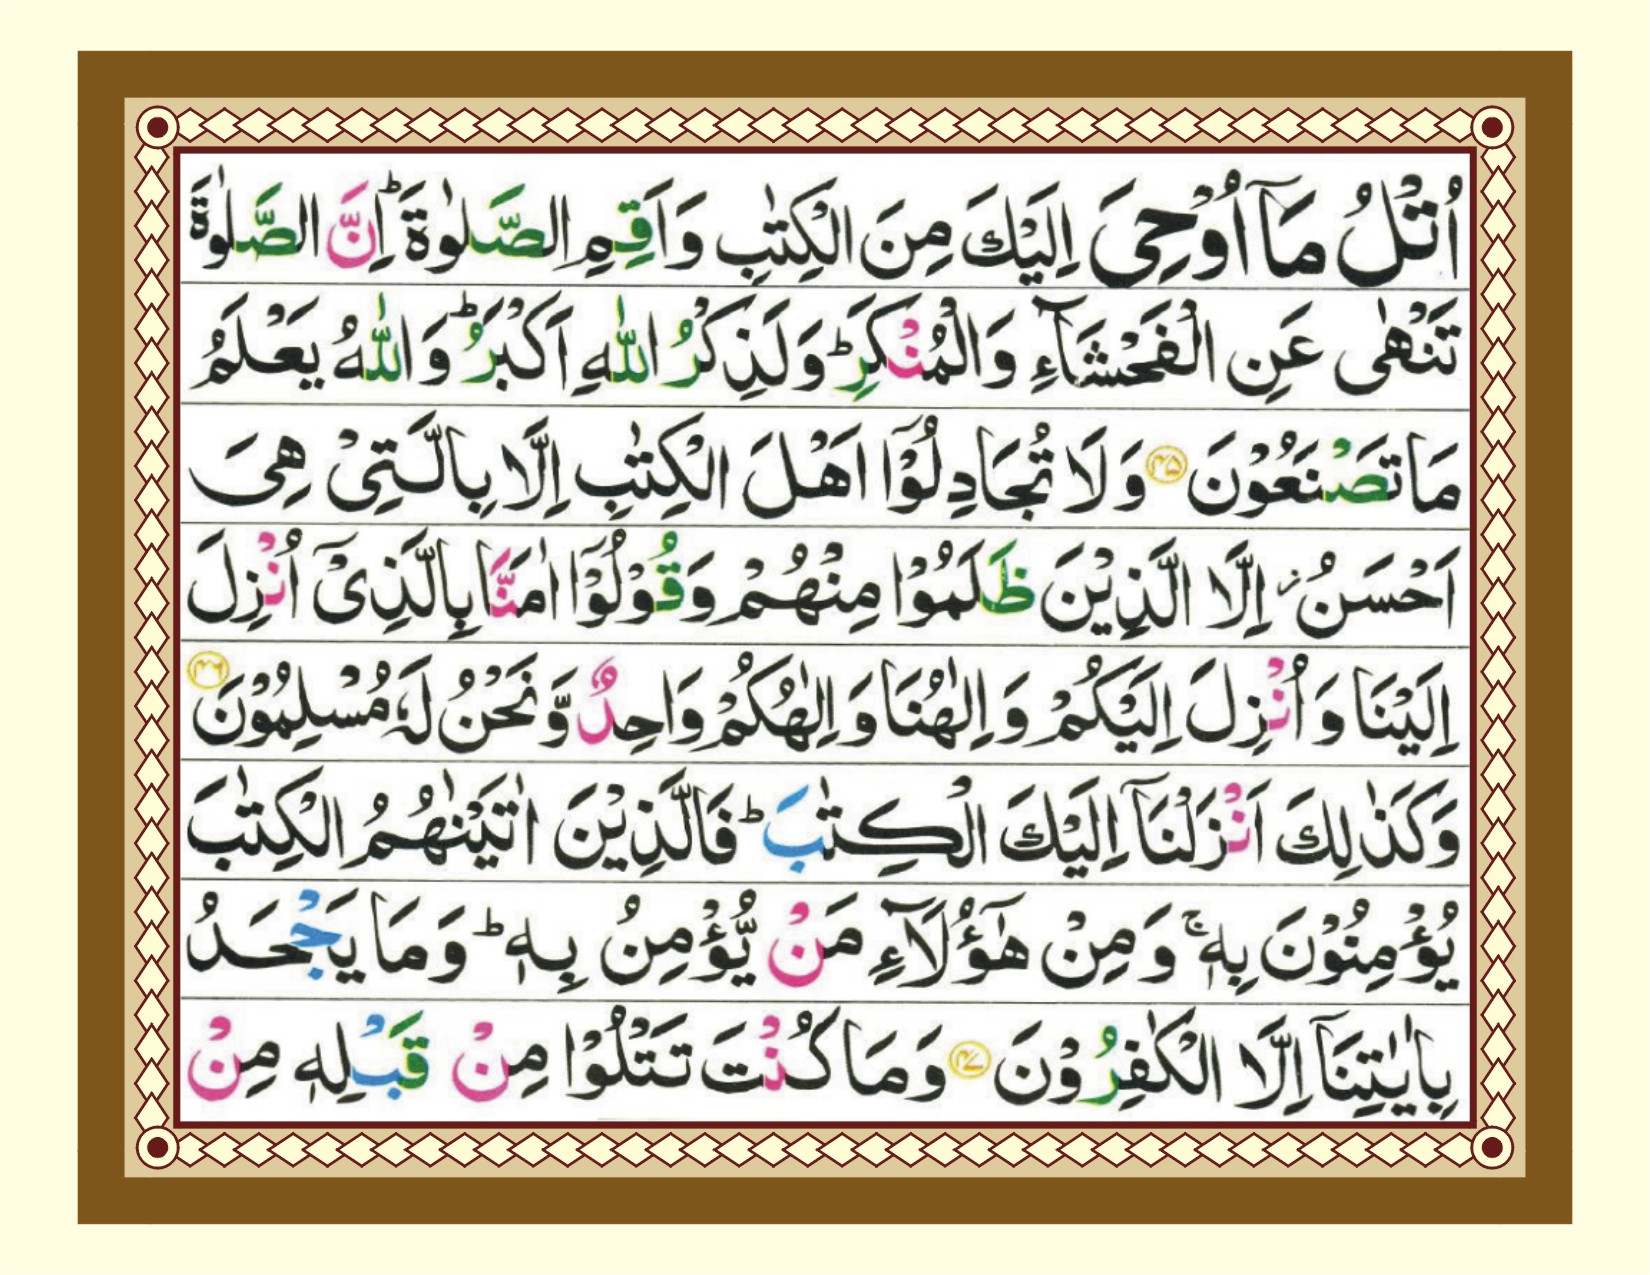 اُتْلُ مَاۤ اُوْحِیَ اِلَیْكَ مِنَ الْكِتٰبِ وَاَقِمِ الصَّلٰوةَ ؕ اِنَّ الصَّلٰوةَ
تَنْهٰی عَنِ الْفَحْشَآءِ وَالْمُنْكَرِ ؕ وَلَذِكْرُ اللّٰهِ اَكْبَرُ ؕ وَاللّٰهُ یَعْلَمُ
مَا تَصْنَعُوْنَ ۴۵ وَلَا تُجَادِلُوْۤا اَهْلَ الْكِتٰبِ اِلَّا بِالَّتِیْ هِیَ
اَحْسَنُ ۖۗ اِلَّا الَّذِیْنَ ظَلَمُوْا مِنْهُمْ وَقُوْلُوْۤا اٰمَنَّا بِالَّذِیْۤ اُنْزِلَ
اِلَیْنَا وَاُنْزِلَ اِلَیْكُمْ وَاِلٰهُنَا وَاِلٰهُكُمْ وَاحِدٌ وَّنَحْنُ لَهٗ مُسْلِمُوْنَ ۴۶
وَكَذٰلِكَ اَنْزَلْنَاۤ اِلَیْكَ الْكِتٰبَ ؕ فَالَّذِیْنَ اٰتَیْنٰهُمُ الْكِتٰبَ
یُؤْمِنُوْنَ بِهٖ ۚ وَمِنْ هٰۤؤُلَآءِ مَنْ یُّؤْمِنُ بِهٖ ؕ وَمَا یَجْحَدُ
بِاٰیٰتِنَاۤ اِلَّا الْكٰفِرُوْنَ ۴۷ وَمَا كُنْتَ تَتْلُوْا مِنْ قَبْلِهٖ مِنْ